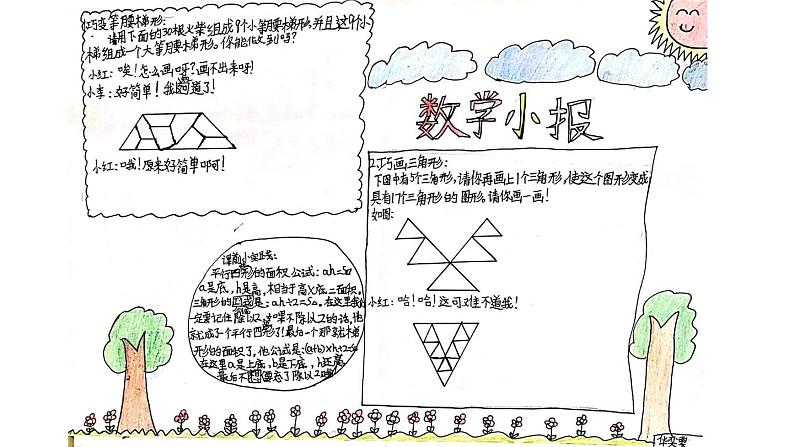 1.巧变等腰梯形:
请用下面的30根火柴组成9个小等腰梯形,并且这9个小
梯组成一个大等腰梯形。你能做到吗?
小红:唉!怎么画呀?画不出来呀!
小李:好简单!我知道了!
小红:哦!原来好简单啊可!
数学小报
2.巧画三角形:
下图中有5个三角形,请你再画上1个三角形,使这个图形变成
具有17个三角形的图形。请你画一画!
如图:
小红:哈!哈!这可难不道我!
课前小实践:
平行四形的面积公式:ah=S
a是底,h是高,相当于高×底=面积。
三角形的公式是:ah÷2=S。在这里我们
一定要记住除以2,如果不除以2的话,他
就成了个平行四形了!最后一个那就是梯
形的面积了,他公式是:(a+b)×h÷2=S
在这里a是上底,b是下底,h还是高
最后不要忘了除以2哦!